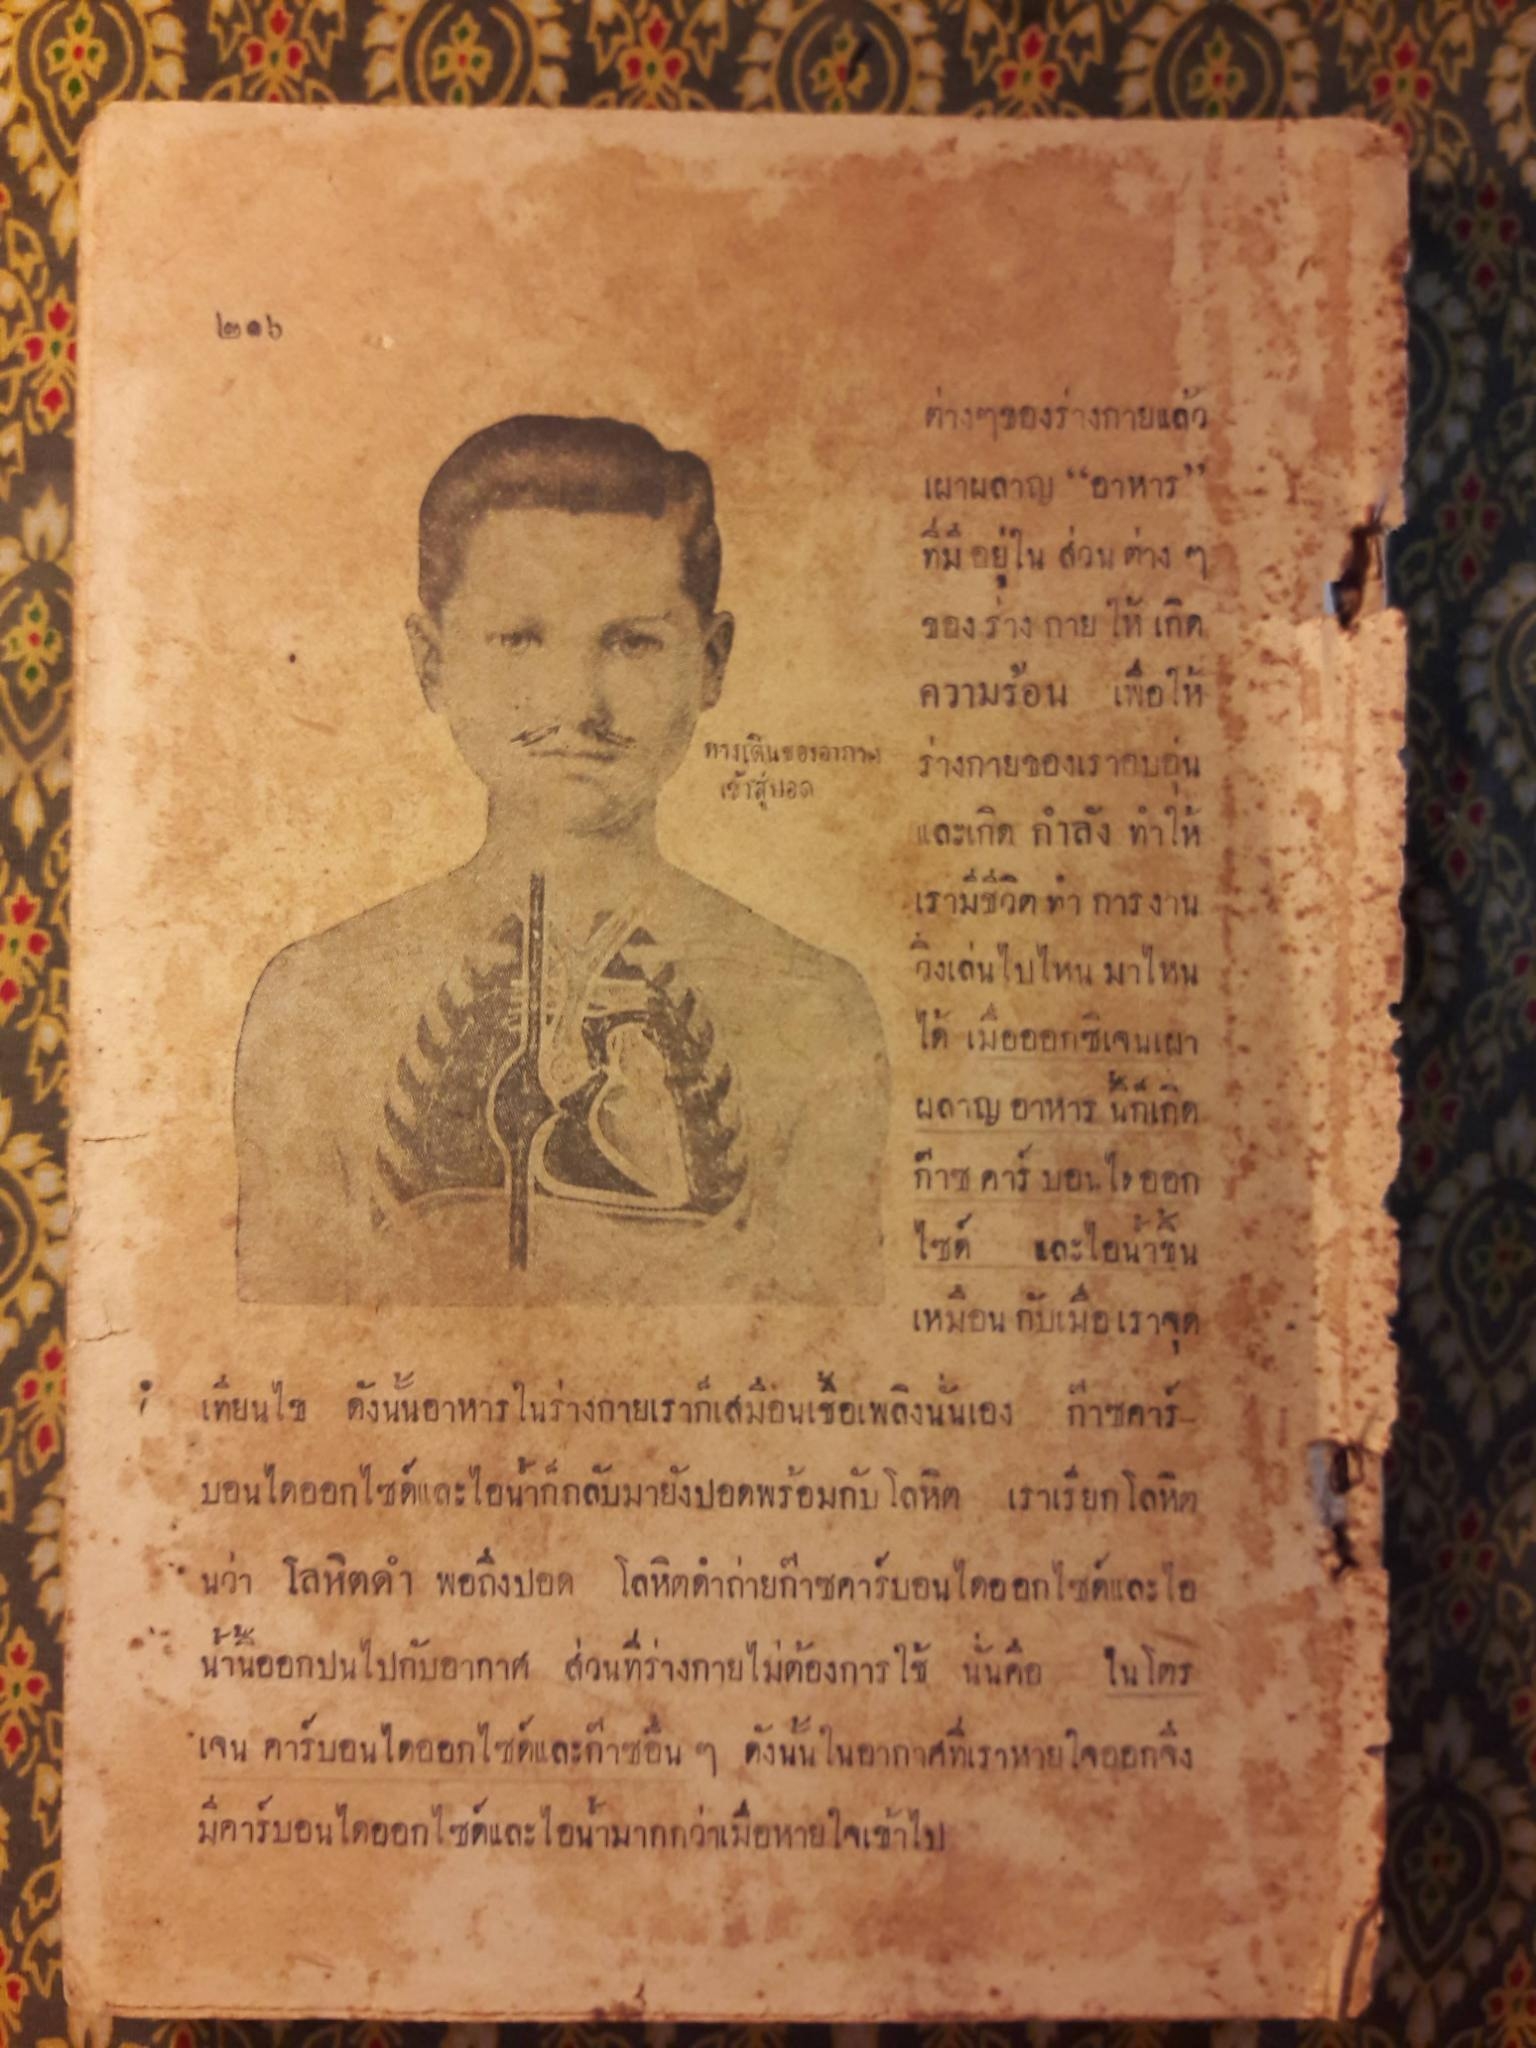 ๒๑๖
ต่างๆของร่างกายแล้ว
เผาผลาญ “อาหาร”
ที่มีอยู่ใน ส่วนต่าง ๆ
ของร่าง กาย ให้ เกิด
ความร้อน เพื่อให้
ร่างกายของเราอบอุ่น
และเกิด กำลัง ทำให้
เรามีชีวิต ทำ การ งาน
วิ่งเล่นไปไหน มาไหน
ได้ เมื่อออกซิเจนเผา
ผลาญ อาหาร นี้ก็เกิด
ก๊าซ คาร์ บอนไดออก
ไซด์ และไอน้ำขึ้น
เหมือน กับเมื่อ เราจุด
ทางเดินของอากาศ
เข้าสู่ปอด
เทียนไข ดังนั้นอาหารในร่างกายเราก็เสมือนเชื้อเพลิงนั่นเอง ก๊าซคาร์-
บอนไดออกไซด์และไอน้ำก็กลับมายังปอดพร้อมกับโลหิต เราเรียกโลหิต
นว่า โลหิตดำ พอถึงปอด โลหิตดำถ่ายก๊าซคาร์บอนไดออกไซด์และไอ
น้ำนี้ออกปนไปกับอากาศ ส่วนที่ร่างกายไม่ต้องการใช้ นั่นคือ ไนโตร
เจน คาร์บอนไดออกไซด์และก๊าซอื่น ๆ ดังนั้นในอากาศที่เราหายใจออกจึง
มีคาร์บอนไดออกไซด์และไอน้ำมากกว่าเมื่อหายใจเข้าไป